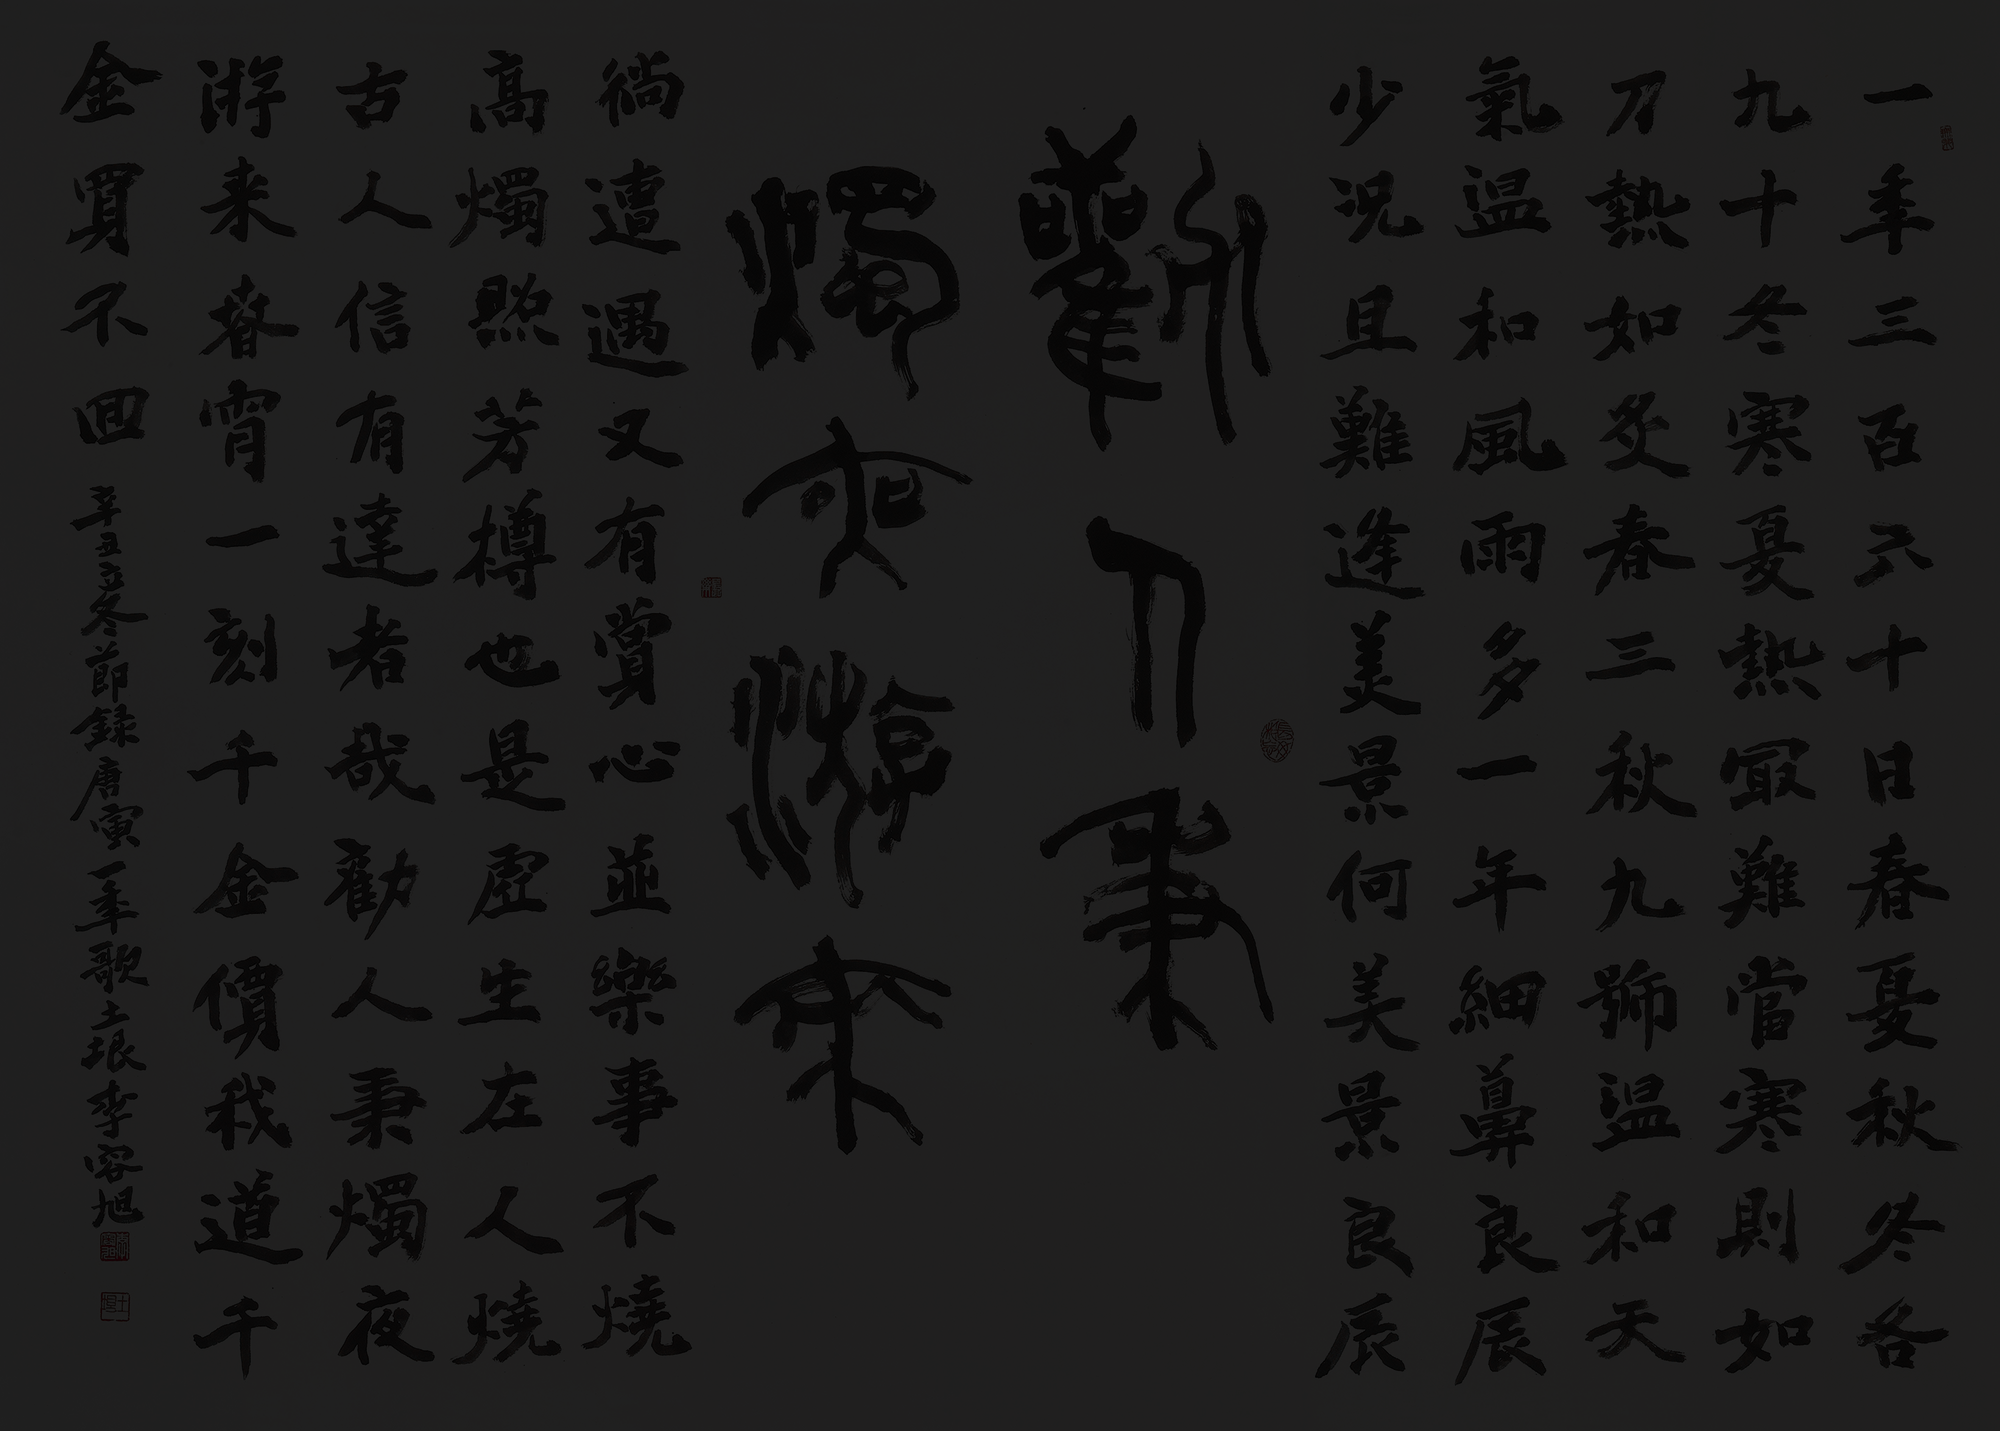 一年三百六十日春夏秋冬各
九十冬寒夏熱冣難當寒則如
刀熱如炙春三秋九號温和天
氣温和風雨多一年細算良辰
少況且難逢美景何美景良辰
勸人秉
燭夜游來
徜遭遇又有賞心並樂事不燒
高燭照芳樽也是虛生在人燒
古人信有達者哉勸人秉燭夜
游来春宵一刻千金價我道千
金買不回 辛丑立冬節録唐寅一年歌土垠李容旭